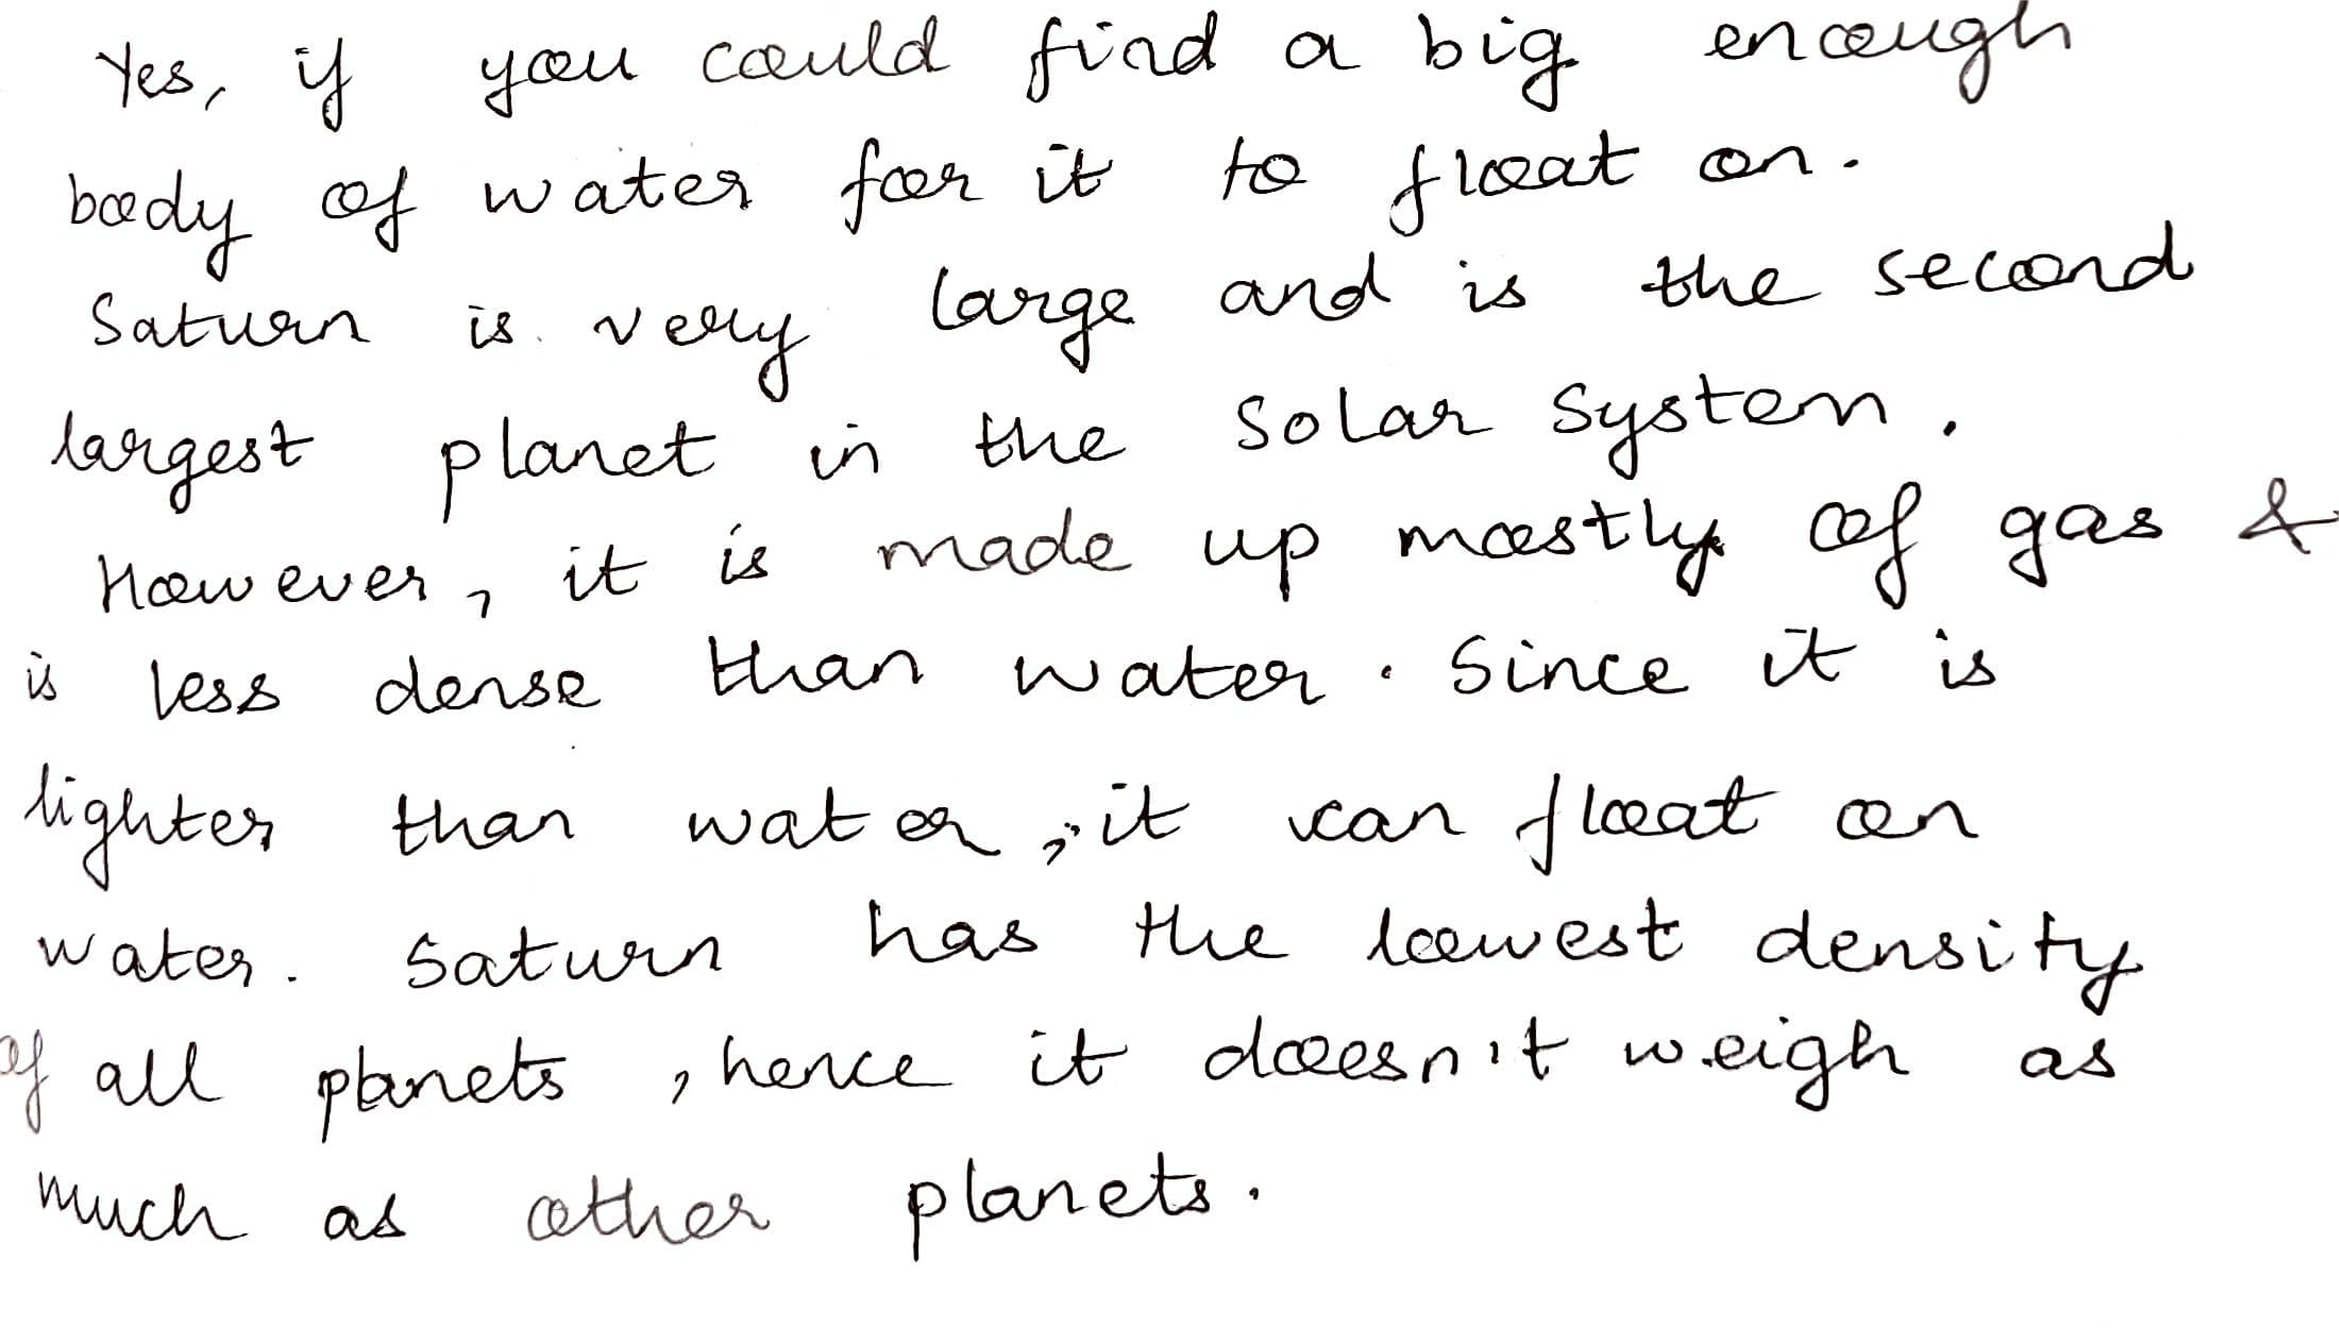 Yes, if you could find a big enough
body of water for it to float on.
Saturn is very large and is the second
largest planet in the Solar System.
However, it is made up mostly of gas &
is less dense than water. Since it is
lighter than water, it can float on
water. Saturn has the lowest density
of all planets, hence it doesn't weigh as
much as other planets.